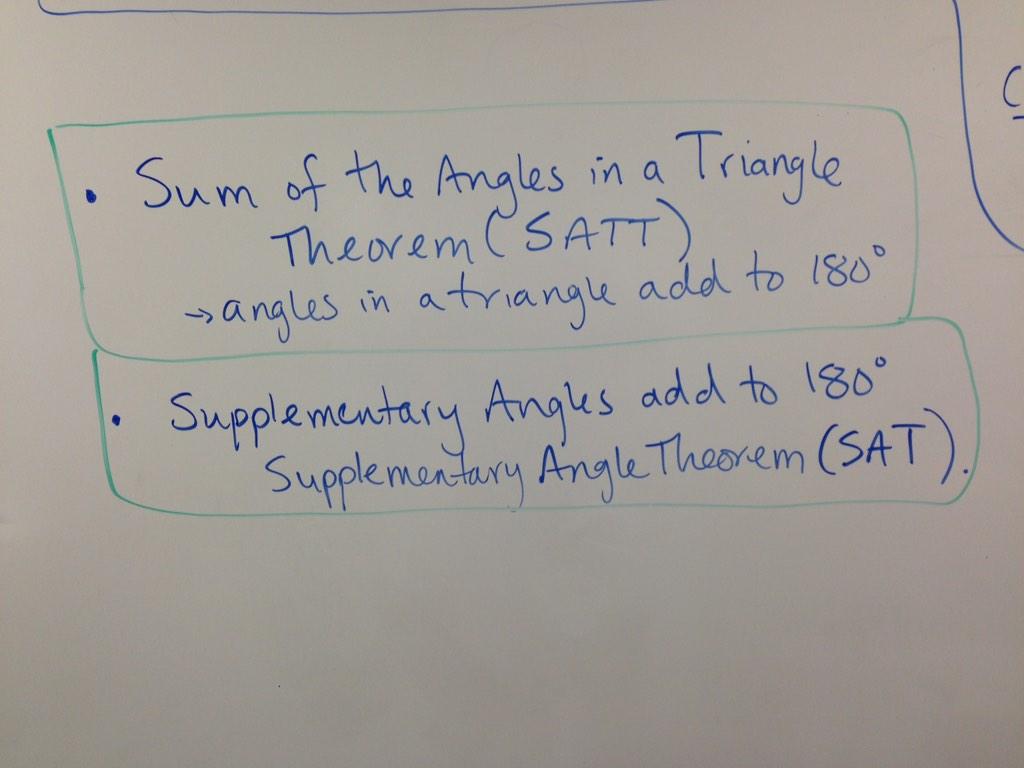 • Sum of the Angles in a Triangle
Theorem (SATT)
→ angles in a triangle add to 180°
• Supplementary Angles add to 180°
Supplementary Angle Theorem (SAT).